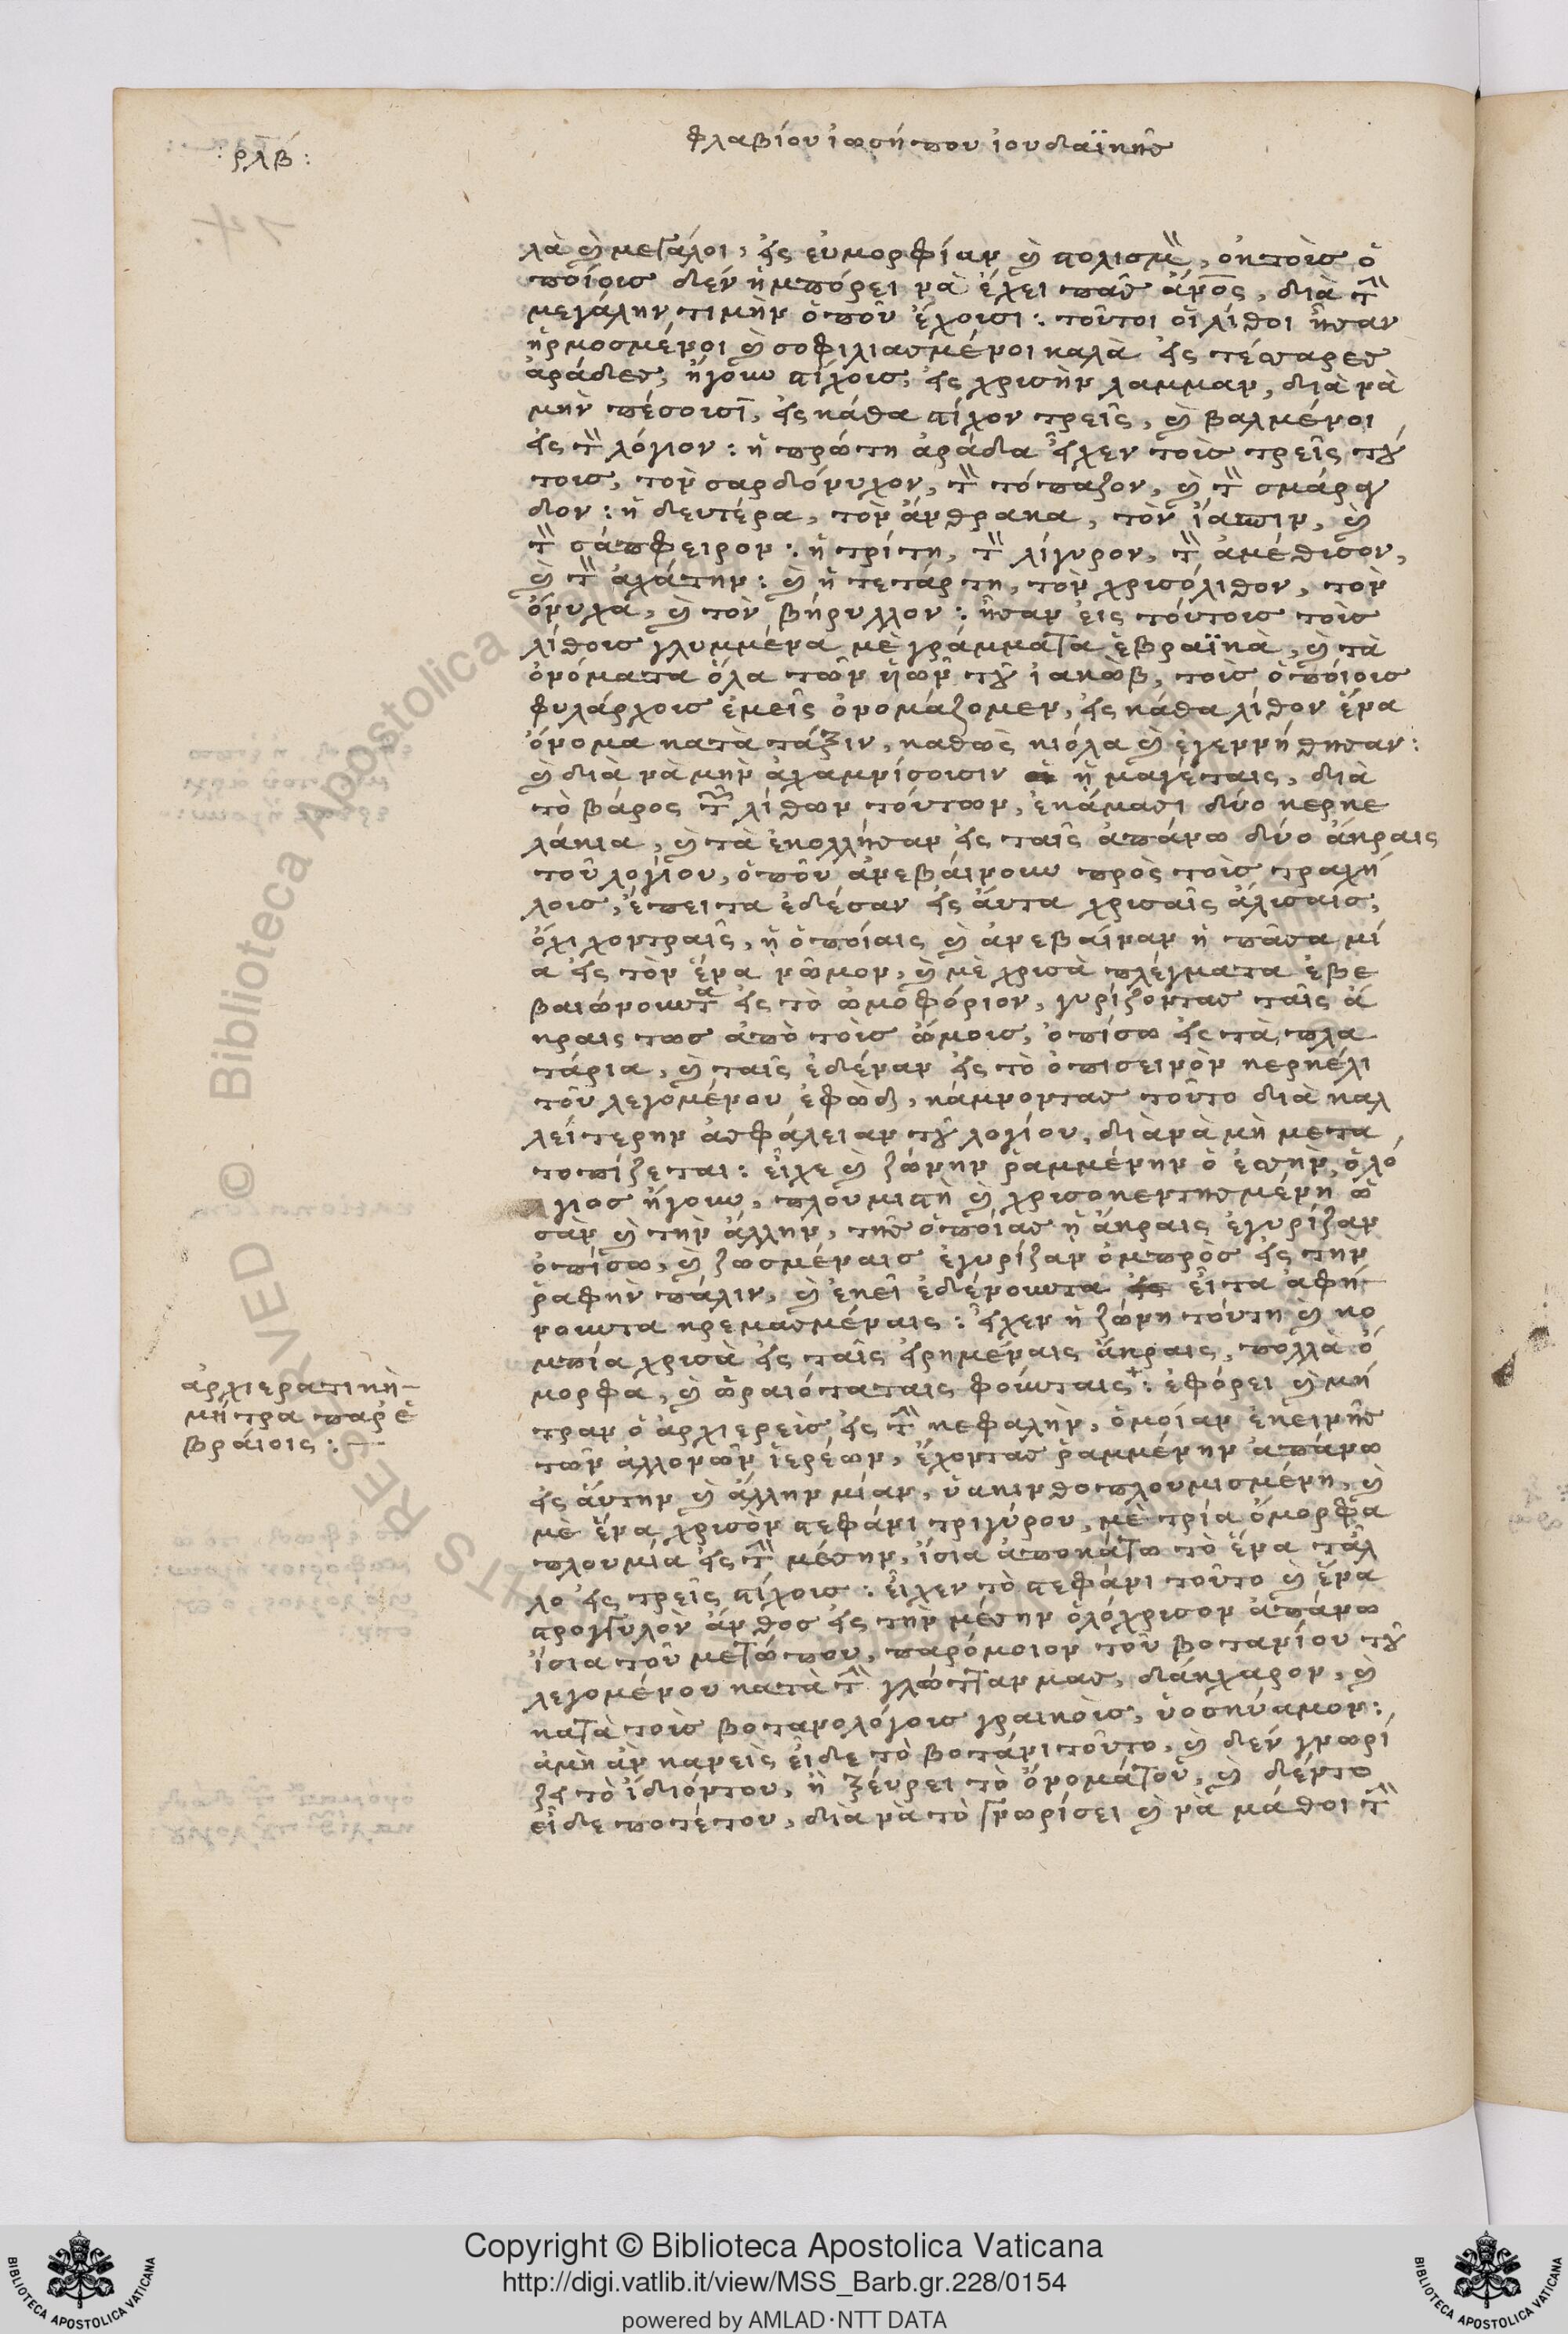 :ρλβ:
φλαβίου ἰωσήπου ἰουδαϊκῆς
λὰ καὶ μεγάλοι, εἰς εὐμορφίαν καὶ στολισμὸν, οκτοὶς ὁ
ποίοις δὲν ἠμπόρει νὰ ἔχει πᾶς ἄνος, διὰ τὴν
μεγάλην τιμὴν ὁποῦ ἔχοισι: τοῦτοι οἱ λίθοι ἦσαν
ἡρμοσμένοι καὶ σοφιλιασμένοι καλὰ εἰς τέσσαρες
ἀράδες, ἤγουν στίχοις, εἰς χρισὴν λαμμαν, διὰ νὰ
μὴν πέσοισι, εἰς κάθα στίχον τρεῖς, καὶ βαλμένοι
εἰς τὸ λόγιον: ἡ πρώτη ἀράδα εἶχεν τοὶς τρεῖς τού
τοις, τὸν σαρδόνυχον, τὸν τόπαζον, καὶ τὸν σμάραγ
δον: ἡ δευτέρα, τὸν ἄνθρακα, τὸν ἴασπιν, καὶ
τὸν σάπφειρον: ἡ τρίτη, τὸν λίγυρον, τὸν ἀμέθισον,
καὶ τὸν ἀχάτην: καὶ ἡ τετάρτη, τὸν χρισόλιθον, τὸν
ὄνυχα, καὶ τὸν βήρυλλον: ἦσαν εἰς τούτοις τοὶς
λίθοις γλυμμένα μὲ γράμματα ἑβραϊκὰ, καὶ τὰ
ὀνόματα ὅλα τῶν ἡῶν τοῦ ἰακὼβ, τοὶς ὁποίοις
φυλάρχοις ἐμεῖς ὀνομάζομεν, εἰς κάθα λίθον ἕνα
ὄνομα κατὰ τάξιν, καθὼς κιόλα καὶ ἐγεννήθησαν:
καὶ διὰ νὰ μὴν ἀχαμνίσοισιν ἡ μαγέταις, διὰ
τὸ βάρος τῶν λίθων τούτων, ἐκάμασι δύο κερκε
λάκια, καὶ τὰ ἐκολλήσαν εἰς ταῖς ἀπάνω δύο ἄκραις
τοῦ λογίου, ὁποῦ ἀνεβαίνουν πρὸς τοὶς τραχή
λοις, ἔπειτα ἐδέσαν εἰς ἄυτα χρισαῖς ἀλισαις,
ὄχι χοντραῖς, ἡ ὁποίαις καὶ ἀνεβαίναν ἡ πᾶσα μί
α εἰς τὸν ἕνα νῶμον, καὶ μὲ χρισὰ πλέγματα ἐβε
βαιώνουντα εἰς τὸ ὠμοφόριον, γυρίζοντας ταῖς ἄ
κραις τως ἀπὸ τοὶς ὤμοις, ὀπίσω εἰς τὰ πλα
τάρια, καὶ ταῖς ἐδέναν εἰς τὸ ὀπισεινὸν κερκέλι
τοῦ λεγομένου ἐφὼδ, κάμνοντας τοῦτο διὰ καλ
λείτερην ἀσφάλειαν τοῦ λογίου, διὰ νὰ μὴ μετα
τοπίζεται: εἶχε καὶ ζώνην ῥαμμένην ὁ ἐσσὴν, ὁλό
γιος ἤγουν, πλουμιστὴ καὶ χρισοκεντησμένη ὡ
σὰν καὶ τὴν ἄλλην, τῆς ὁποίας ἡ ἄκραις ἐγυρίζαν
ὀπίσω, καὶ ζωσμέναις ἐγυρίζαν ὀμπρὸς εἰς τὴν
ῥαφὴν πάλιν, καὶ ἐκεῖ ἐδένουντα εἶτα ἀφή
νουντα κρεμασμέναις: εἶχεν ἡ ζώνη τούτη καὶ κο
μπία χρισὰ εἰς ταῖς εἰρημέναις ἄκραις, πολλὰ ὄ
μορφα, καὶ ὡραιόταταις φούνταις+: ἐφόρει καὶ μή
τραν ὁ ἀρχιερεὶς εἰς τὴν κεφαλὴν, ὁμοίαν ἐκεινῆς
τῶν ἀλλονῶν ἱερέων, ἔχοντας ῥαμμένην ἀπάνω
εἰς ἄυτην καὶ ἄλλην μίαν, ὑακινθοπλουμισμένη, καὶ
μὲ ἕνα χρισὸν στεφάνι τριγύρου, μὲ τρία ὄμορφα
πλουμία εἰς τὴν μέσην, ἴσια ἀποκάτω τὸ ἕνα τἄλ
λο εἰς τρεῖς στίχοις: εἶχεν τὸ στεφάνι τοῦτο καὶ ἕνα
στρογγυλὸν ἄνθος εἰς τὴν μέσην ὁλόχρισον ἀπάνω
ἴσια τοῦ μετώπου, παρόμοιον τοῦ βοτανίου τοῦ
λεγομένου κατὰ τὴν γλῶτταν μας, διάκχαρον, καὶ
κατὰ τοὶς βοτανολόγοις γραικοὶς, ὑοσκύαμον:
ἀμὴ ἀν κανεὶς εἶδε τὸ βοτάνι τοῦτο, καὶ δὲν γνωρί
ζει τὸ ἰδιόντου, ἢ ξέυρει τὸ ὄνομάτου, καὶ δέντο
εἶδε ποτέτου, διὰ νὰ τὸ γνωρίσει καὶ νὰ μάθοι τὴν
ἀρχιερατικὴ
μήτρα παρ' ἑ
βραίοις:
Copyright © Biblioteca Apostolica Vaticana
http://digi.vatlib.it/view/MSS_Barb.gr.228/0154
powered by AMLAD·NTT DATA